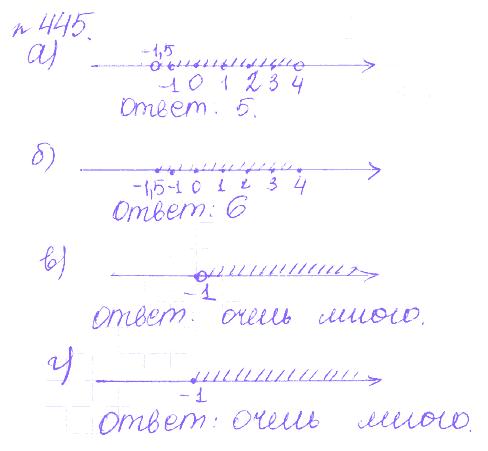 п 445.
а)
-1,5
-1 0 1 2 3 4
Ответ: 5.
б)
-1,5 -1 0 1 2 3 4
Ответ: 6
в)
-1
Ответ: очень много.
г)
-1
Ответ: очень много.